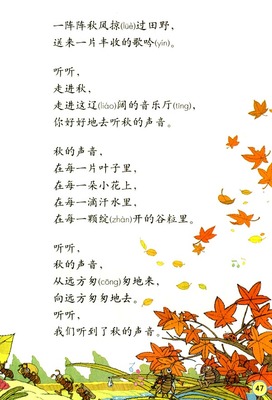 一阵阵秋风掠(lüè)过田野，
送来一片丰收的歌吟(yín)。
听听，
走进秋，
走进这辽(liáo)阔的音乐厅(tīng)，
你好好地去听秋的声音。
秋的声音，
在每一片叶子里，
在每一朵小花上，
在每一滴汗水里，
在每一颗绽(zhàn)开的谷粒里。
听听，
秋的声音，
从远方匆(cōng)匆地来，
向远方匆匆地去。
听听，
我们听到了秋的声音。
47